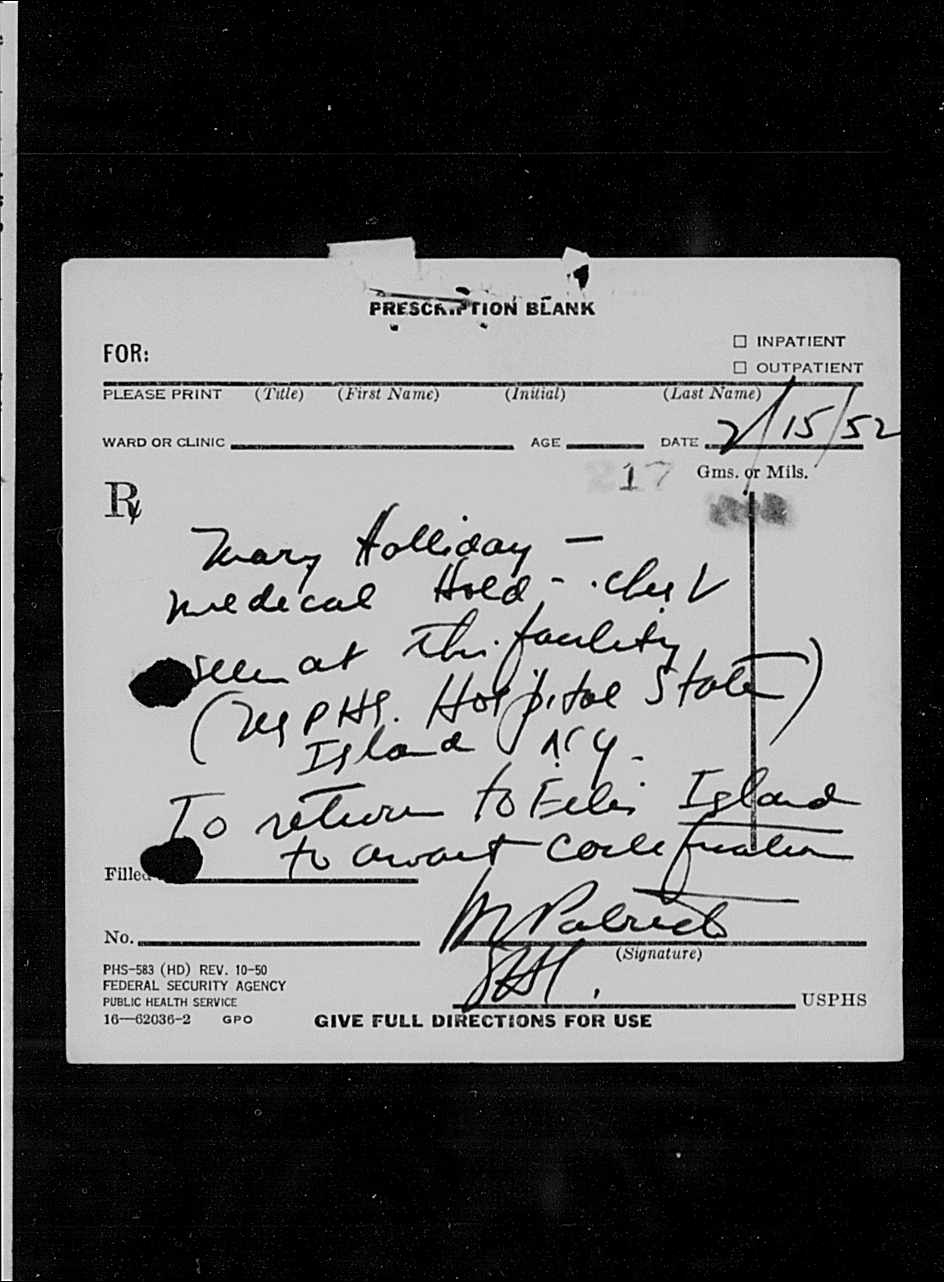 PRESCRIPTION BLANK
FOR:
☐ INPATIENT
☐ OUTPATIENT
PLEASE PRINT (Title) (First Name) (Initial) (Last Name)
WARD OR CLINIC AGE DATE 2/15/52
217 Gms. or Mils.
Rx
Mary Holliday —
Medical Hold - chest
seen at this facility
(USPHS. Hospital Staten)
Island NY.
To return to Ellis Island
to await certification
Filled
M Patrick
No.
(Signature)
PHS-583 (HD) REV. 10-50
FEDERAL SECURITY AGENCY
PUBLIC HEALTH SERVICE
USPHS
16—62036-2 GPO GIVE FULL DIRECTIONS FOR USE